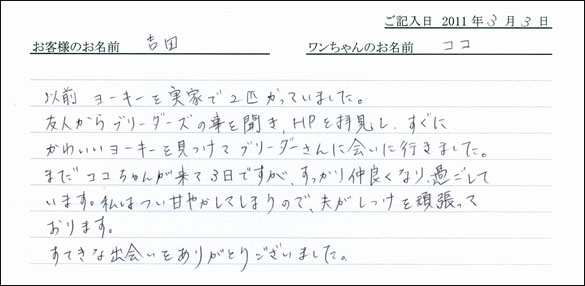 ご記入日 2011年3月3日
お客様のお名前 吉田 ワンちゃんのお名前 ココ
以前 ヨーキーを実家で2匹かっていました。
友人からブリーダーズの事を聞き、HPを拝見し、すぐに
かわいいヨーキーを見つけてブリーダーさんに会いに行きました。
まだココちゃんが来て3日ですが、すっかり仲良くなり、過ごして
います。私はつい甘やかしてしまうので、夫がしつけを頑張って
おります。
すてきな出会いをありがとうございました。